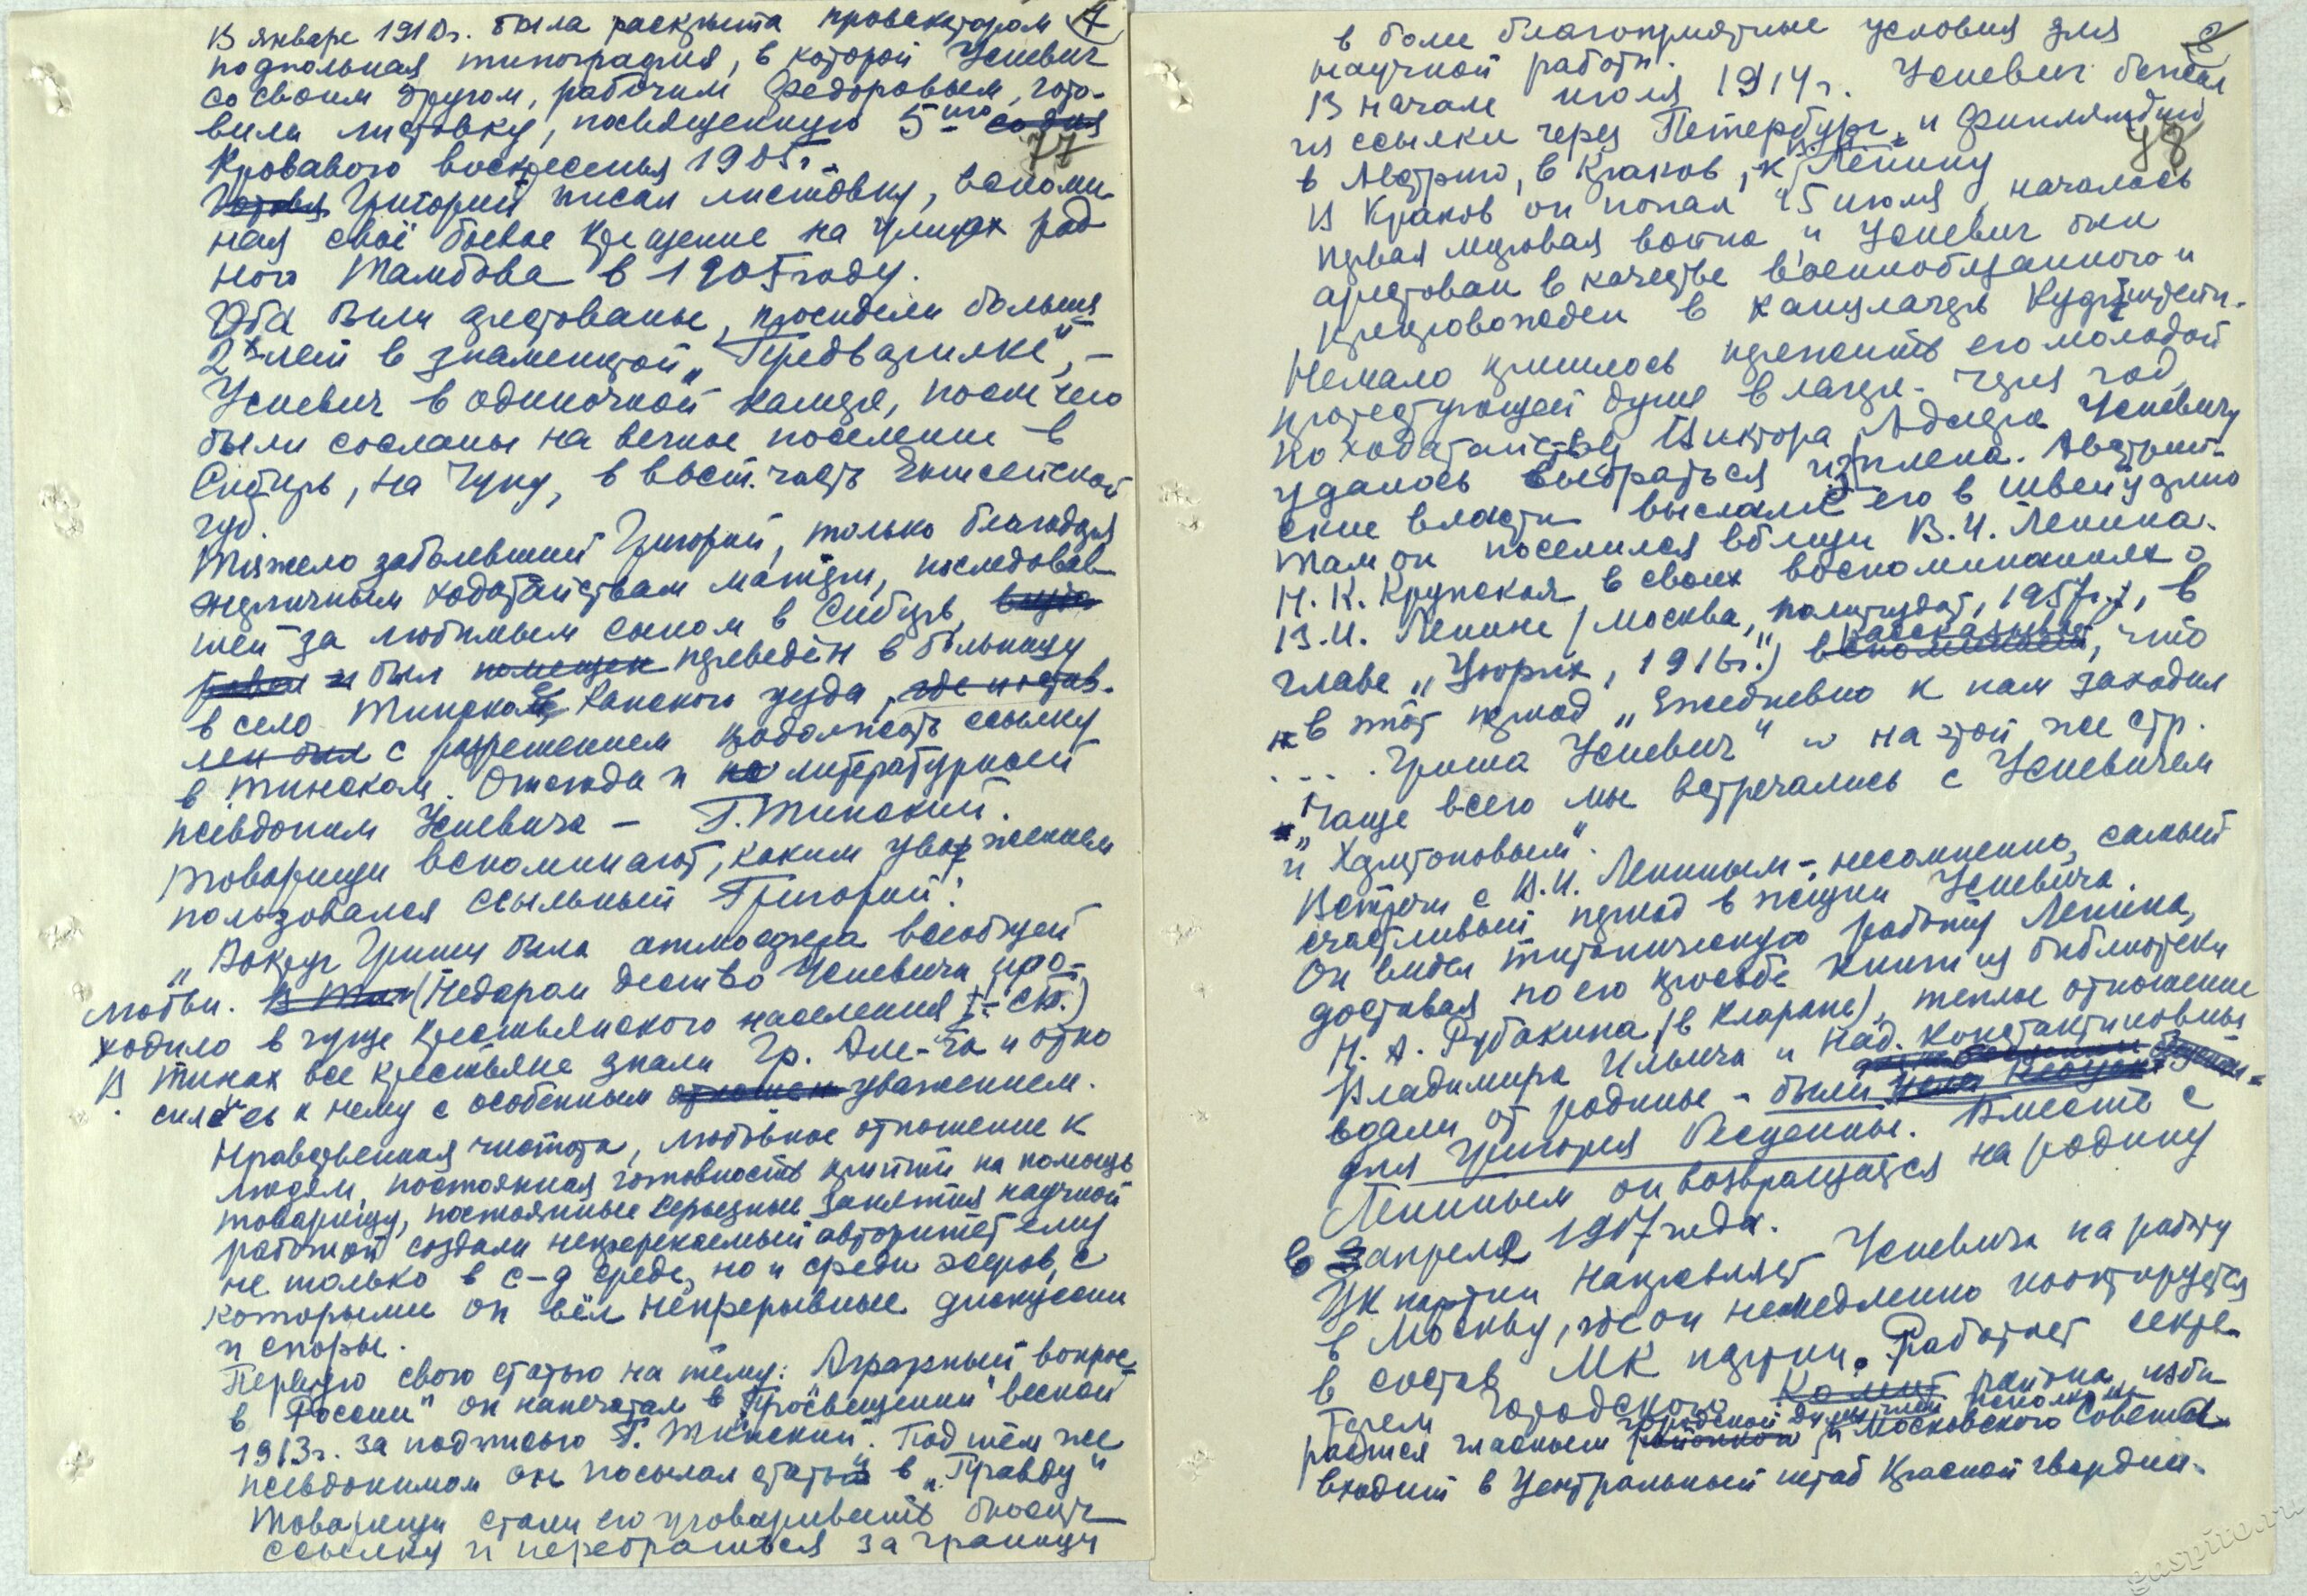 В январе 1910г. была раскрыта провокатором
подпольная типография, в которой Усиевич
со своим другом, рабочим Федоровым, гото-
вили листовку, посвященную 5-ию со дня
77
Кровавого воскресенья 1905г.
Готовя Григорий писал листовку, вспоми-
ная своё боевое крещение на улицах род-
ного Тамбова в 1905 году.
Оба были арестованы, просидели больше
2х лет в знаменитой „Предварилке", –
Усиевич в одиночной камере, после чего
были сосланы на вечное поселение в
Сибирь, на Чуну, в вост. часть Енисейской
губ.
Тяжело заболевший Григорий, только благодаря
энергичным ходатайствам матери, последовав-
шей за любимым сыном в Сибирь,
и был помещен переведён в больницу
в село Тинское Канского уезда, где и остав-
лен был с разрешением продолжать ссылку
в Тинском. Отсюда и литературный
псевдоним Усиевича – Г. Тинский.
Товарищи вспоминают, каким уважением
пользовался ссыльный Григорий:
„Вокруг Гриши была атмосфера всеобщей
любви. (Недаром детство Усиевича про-
ходило в гуще крестьянского населения
В Тинах все крестьяне знали Гр. Але-ча и отно
сились к нему с особенным уважением.
Нравственная чистота, любовное отношение к
людям, постоянная готовность прийти на помощь
товарищу, постоянные серьезные занятия научной
работой создали непререкаемый авторитет ему
не только в с-д среде, но и среди эсеров, с
которыми он вёл непрерывные дискуссии
и споры.
Первую свою статью на тему: Аграрный вопрос
в России" он напечатал в „Просвещении" весной
1913г. за подписью Г. Тинский. Под тем же
псевдонимом он посылал статьи в „Правду"
Товарищи стали его уговаривать бросить
ссылку и перебраться за границу
8
в более благоприятные условия для
научной работы.
В начале июля 1914г. Усиевич бежал
из ссылки через Петербург и Финляндию
78
в Австрию, в Краков, к Ленину
В Краков он попал 15 июля, началась
первая мировая война и Усиевич был
арестован в качестве военнообязанного и
препровожден в канцлагерь
Немало пришлось пережить его молодой
протестующей душе в лагере. Через год,
по ходатайству Виктора Адлера Усиевичу
удалось выбраться из плена. Австрий-
ские власти выслали его в Швейцарию
Там он поселился вблизи В.И. Ленина.
Н.К. Крупская в своих воспоминаниях о
В.И. Ленине (Москва, политиздат, 1957г.), в
главе „Цюрих, 1916г.") вспоминает, рассказывает, что
в этот период „Ежедневно к нам заходил
. . . . Гриша Усиевич" и на этой же стр.
„Чаще всего мы встречались с Усиевичем
и Харитоновым".
Встречи с В.И. Лениным – несомненно, самый
счастливый период в жизни Усиевича.
Он видел титаническую работу Ленина,
доставая по его просьбе книги из библиотеки
Н.А. Рубакина (в Кларане), теплое отношение
Владимира Ильича и Над. Константиновны
вдали от родины – были
для Григория бесценны. Вместе с
Лениным он возвращается на родину
в апреле 1917 года.
ЦК партии направляет Усиевича на работу
в Москву, где он немедленно кооптируется
в состав МК партии. Работает секре-
тарем Городского Комит района, изби
рается гласным районной городской Думы, член исполкома Московского Совета
входит в Центральный штаб Красной гвардии.
gaspiro.ru